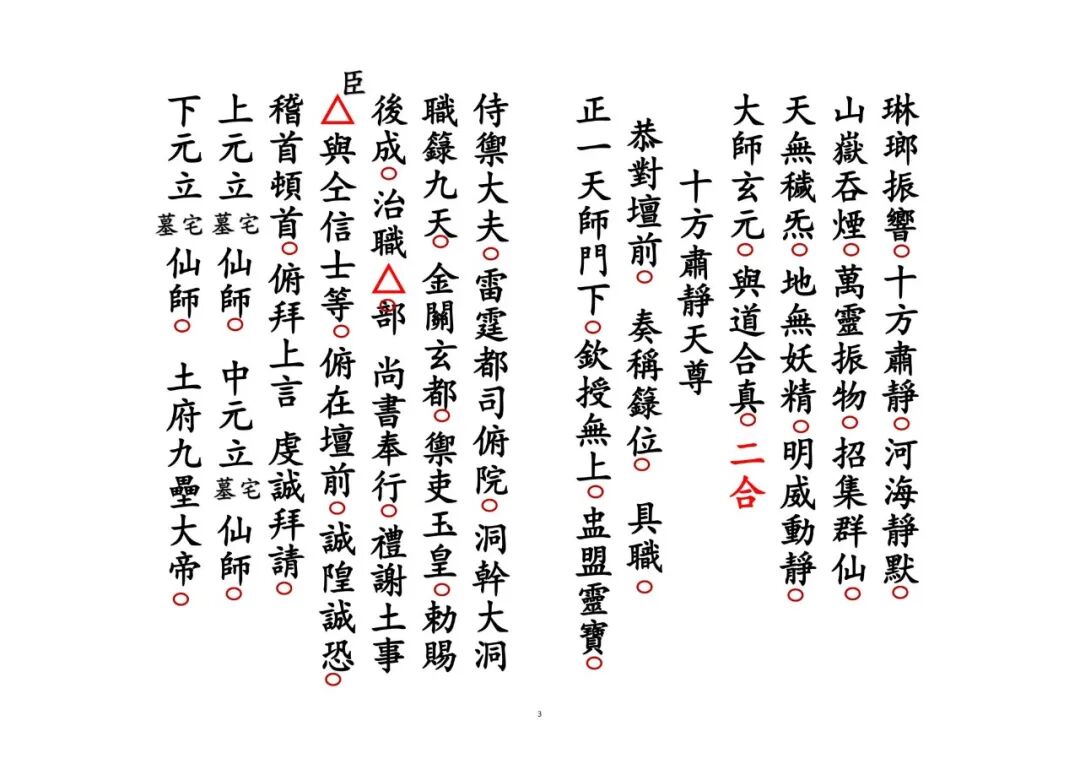 琳瑯振響○十方肅靜○河海靜默○
山嶽吞煙○萬靈振物○招集群仙○
天無穢炁○地無妖精○明威動靜○
大師玄元○與道合真○二合
十方肅靜天尊
恭對壇前○奏稱籙位○具職○
正一天師門下○欽授無上○盅盟靈寶○
侍禦大夫○雷霆都司俯院○洞幹大洞
職籙九天○金關玄都○禦吏玉皇○勅賜
後成○治職△部○尚書奉行○禮謝土事
臣
△與仝信士等○俯在壇前○誠隍誠恐○
稽首頓首○俯拜上言 虔誠拜請○
上元立墓宅仙師○中元立墓宅仙師○
下元立墓宅仙師○土府九壘大帝○
3